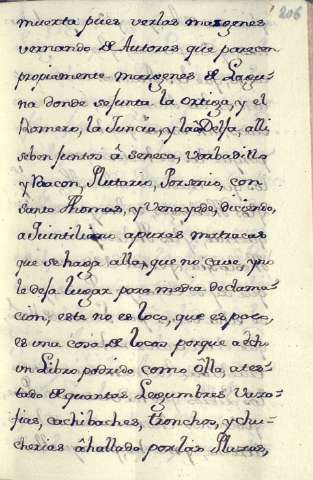 206
muerta pues verlas margenes
vernando de Autores que parecen
propiamente margenes de Lagu-
na donde sejunta la Ortiga, y el
Romero, la Juncia, y la Delfa, alli
seben juntos â Seneca, Barbadillo
y Bacon, Plutarco, Porsenio, con
Santo Thomas, y Venayode, diciendo,
a Quintiliano apuras matracas
que se haga alla, que no cave, y no
le deja lugar para media declama-
cion, este no es loco, que es poco,
es una cosa de locos porque a echo
un Libro podrido como ôlla, ates-
tado de quantas Legumbres Vara-
jias, cachibaches, tronchos, y chu-
cherias âhallado por las Plazas,